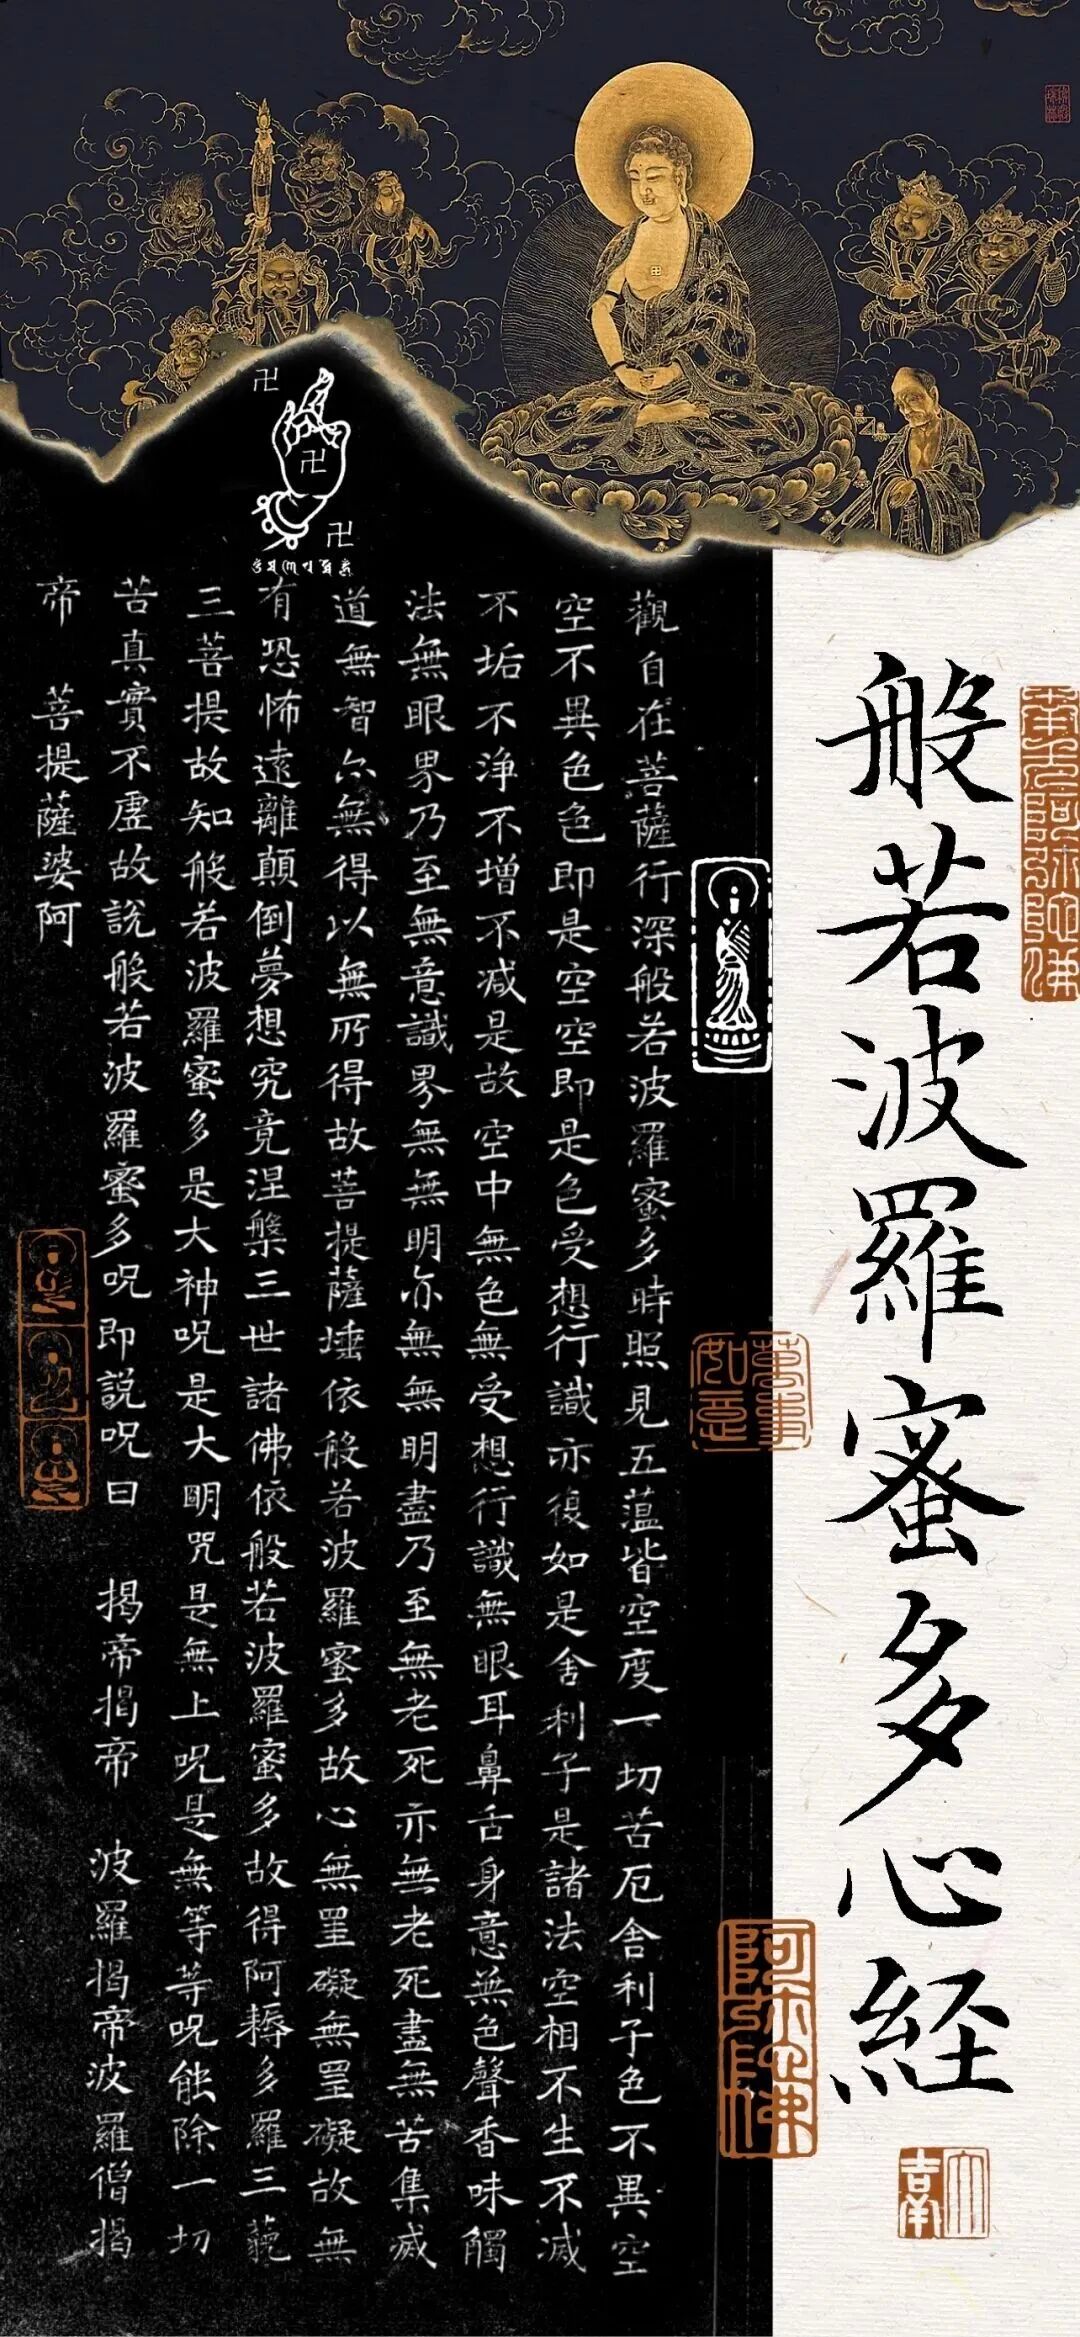 般若波羅蜜多心経
南无阿弥陀佛
萬事如意
阿弥陀佛
觀自在菩薩行深般若波羅蜜多時照見五蕰皆空度一切苦厄舍利子色不異空
空不異色色即是空空即是色受想行識亦復如是舍利子是諸法空相不生不滅
不垢不淨不增不減是故空中無色無受想行識無眼耳鼻舌身意無色聲香味觸
法無眼界乃至無意識界無無明亦無無明盡乃至無老死亦無老死盡無苦集滅
道無智亦無得以無所得故菩提薩埵依般若波羅蜜多故心無罣礙無罣礙故無
有恐怖遠離顛倒夢想究竟涅槃三世諸佛依般若波羅蜜多故得阿耨多羅三藐
三菩提故知般若波羅蜜多是大神呪是大明咒是無上呪是無等等呪能除一切
苦真實不虛故說般若波羅蜜多呪即說呪曰 揭帝揭帝 波羅揭帝波羅僧揭
帝 菩提薩婆阿